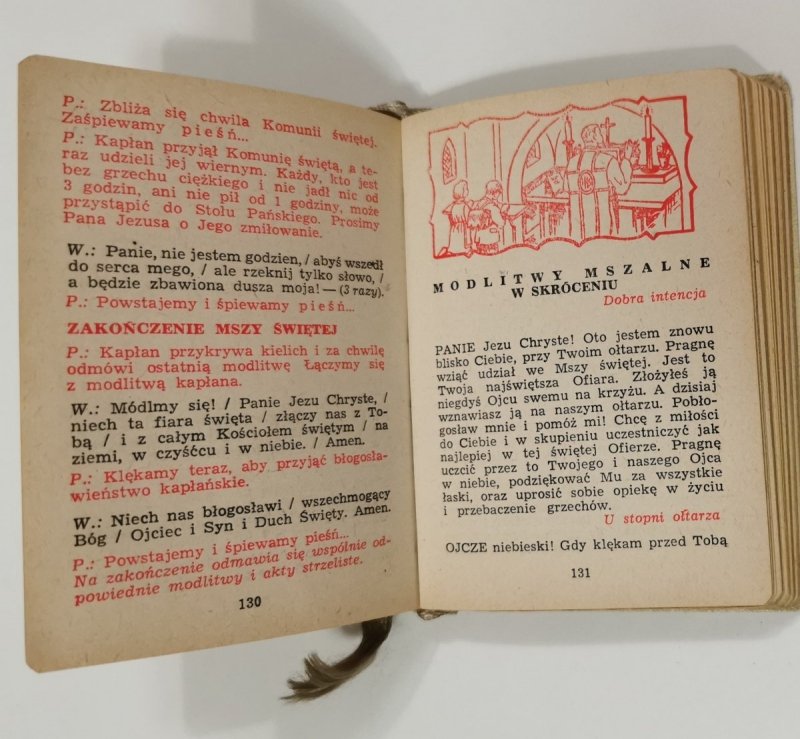 P.: Zbliża się chwila Komunii świętej.
Zaśpiewamy pieśń...
P.: Kapłan przyjął Komunię świętą, a te-
raz udzieli jej wiernym. Każdy, kto jest
bez grzechu ciężkiego i nie jadł nic od
3 godzin, ani nie pił od 1 godziny, może
przystąpić do Stołu Pańskiego. Prosimy
Pana Jezusa o Jego zmiłowanie.
W.: Panie, nie jestem godzien, / abyś wszedł
do serca mego, / ale rzeknij tylko słowo, /
a będzie zbawiona dusza moja! — (3 razy).
P.: Powstajemy i śpiewamy pieśń...
ZAKOŃCZENIE MSZY ŚWIĘTEJ
P.: Kapłan przykrywa kielich i za chwilę
odmówi ostatnią modlitwę Łączymy się
z modlitwą kapłana.
W.: Módlmy się! / Panie Jezu Chryste, /
niech ta fiara święta / złączy nas z To-
bą / i z całym Kościołem świętym / na
ziemi, w czyśćcu i w niebie. / Amen.
P.: Klękamy teraz, aby przyjąć błogosła-
wieństwo kapłańskie.
W.: Niech nas błogosławi / wszechmogący
Bóg / Ojciec i Syn i Duch Święty. Amen.
P.: Powstajemy i śpiewamy pieśń...
Na zakończenie odmawia się wspólnie od-
powiednie modlitwy i akty strzeliste.
130
MODLITWY MSZALNE
W SKRÓCENIU
Dobra intencja
PANIE Jezu Chryste! Oto jestem znowu
blisko Ciebie, przy Twoim ołtarzu. Pragnę
wziąć udział we Mszy świętej. Jest to
Twoja najświętsza Ofiara. Złożyłeś ją
niegdyś Ojcu swemu na krzyżu. A dzisiaj
wznawiasz ją na naszym ołtarzu. Pobło-
gosław mnie i pomóż mi! Chcę z miłości
do Ciebie i w skupieniu uczestniczyć jak
najlepiej w tej świętej Ofierze. Pragnę
uczcić przez to Twojego i naszego Ojca
w niebie, podziękować Mu za wszystkie
łaski, oraz uprosić sobie opiekę w życiu
i przebaczenie grzechów.
U stopni ołtarza
OJCZE niebieski! Gdy klękam przed Tobą
131